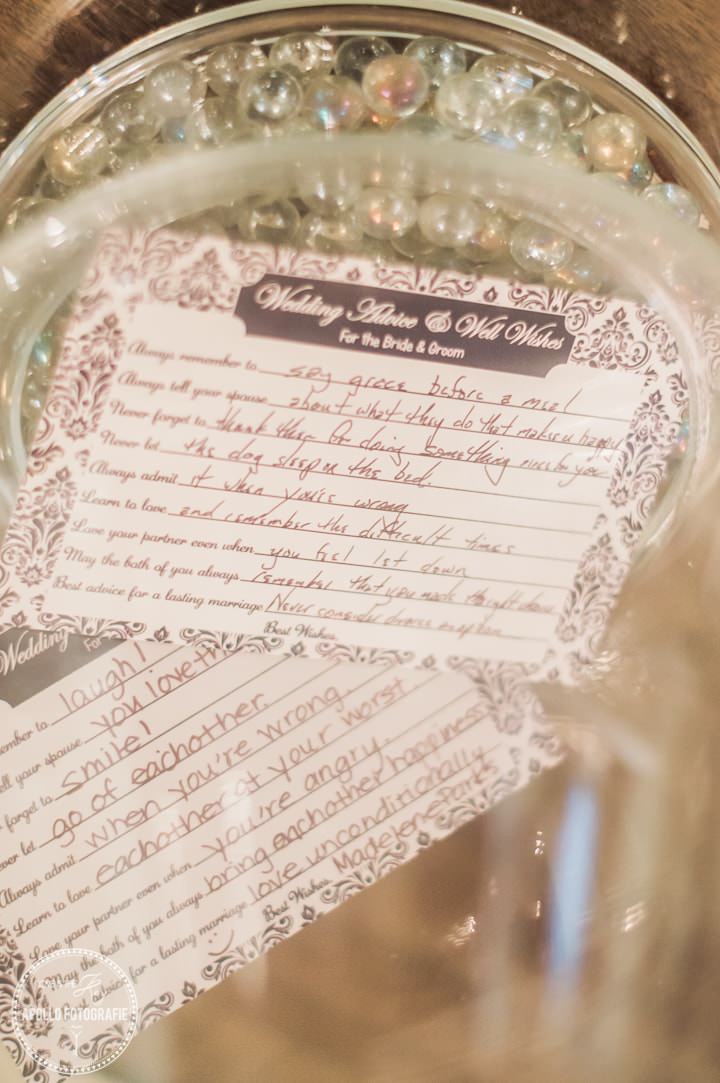 Wedding Advice & Well Wishes
For the Bride & Groom
Always remember to say grace before a meal
Always tell your spouse about what they do that makes u happy
Never forget to thank them for doing something nice for you
Never let the dog sleep on the bed.
Always admit it when you're wrong
Learn to love and remember the difficult times
Love your partner even when you feel let down
May the both of you always remember that you made the
Best advice for a lasting marriage Never consider divorce an option
Best Wishes,
Wedding
For
member to laugh!
tell your spouse you love th
forget to smile!
ever let go of eachother.
Always admit when you're wrong.
Learn to love eachother at your worst
Love your partner even when you're angry.
May the both of you always bring eachother happiness
advice for a lasting marriage love unconditionally
Best Wishes, Madelene Parts
:)
APOLLO FOTOGRAFIE